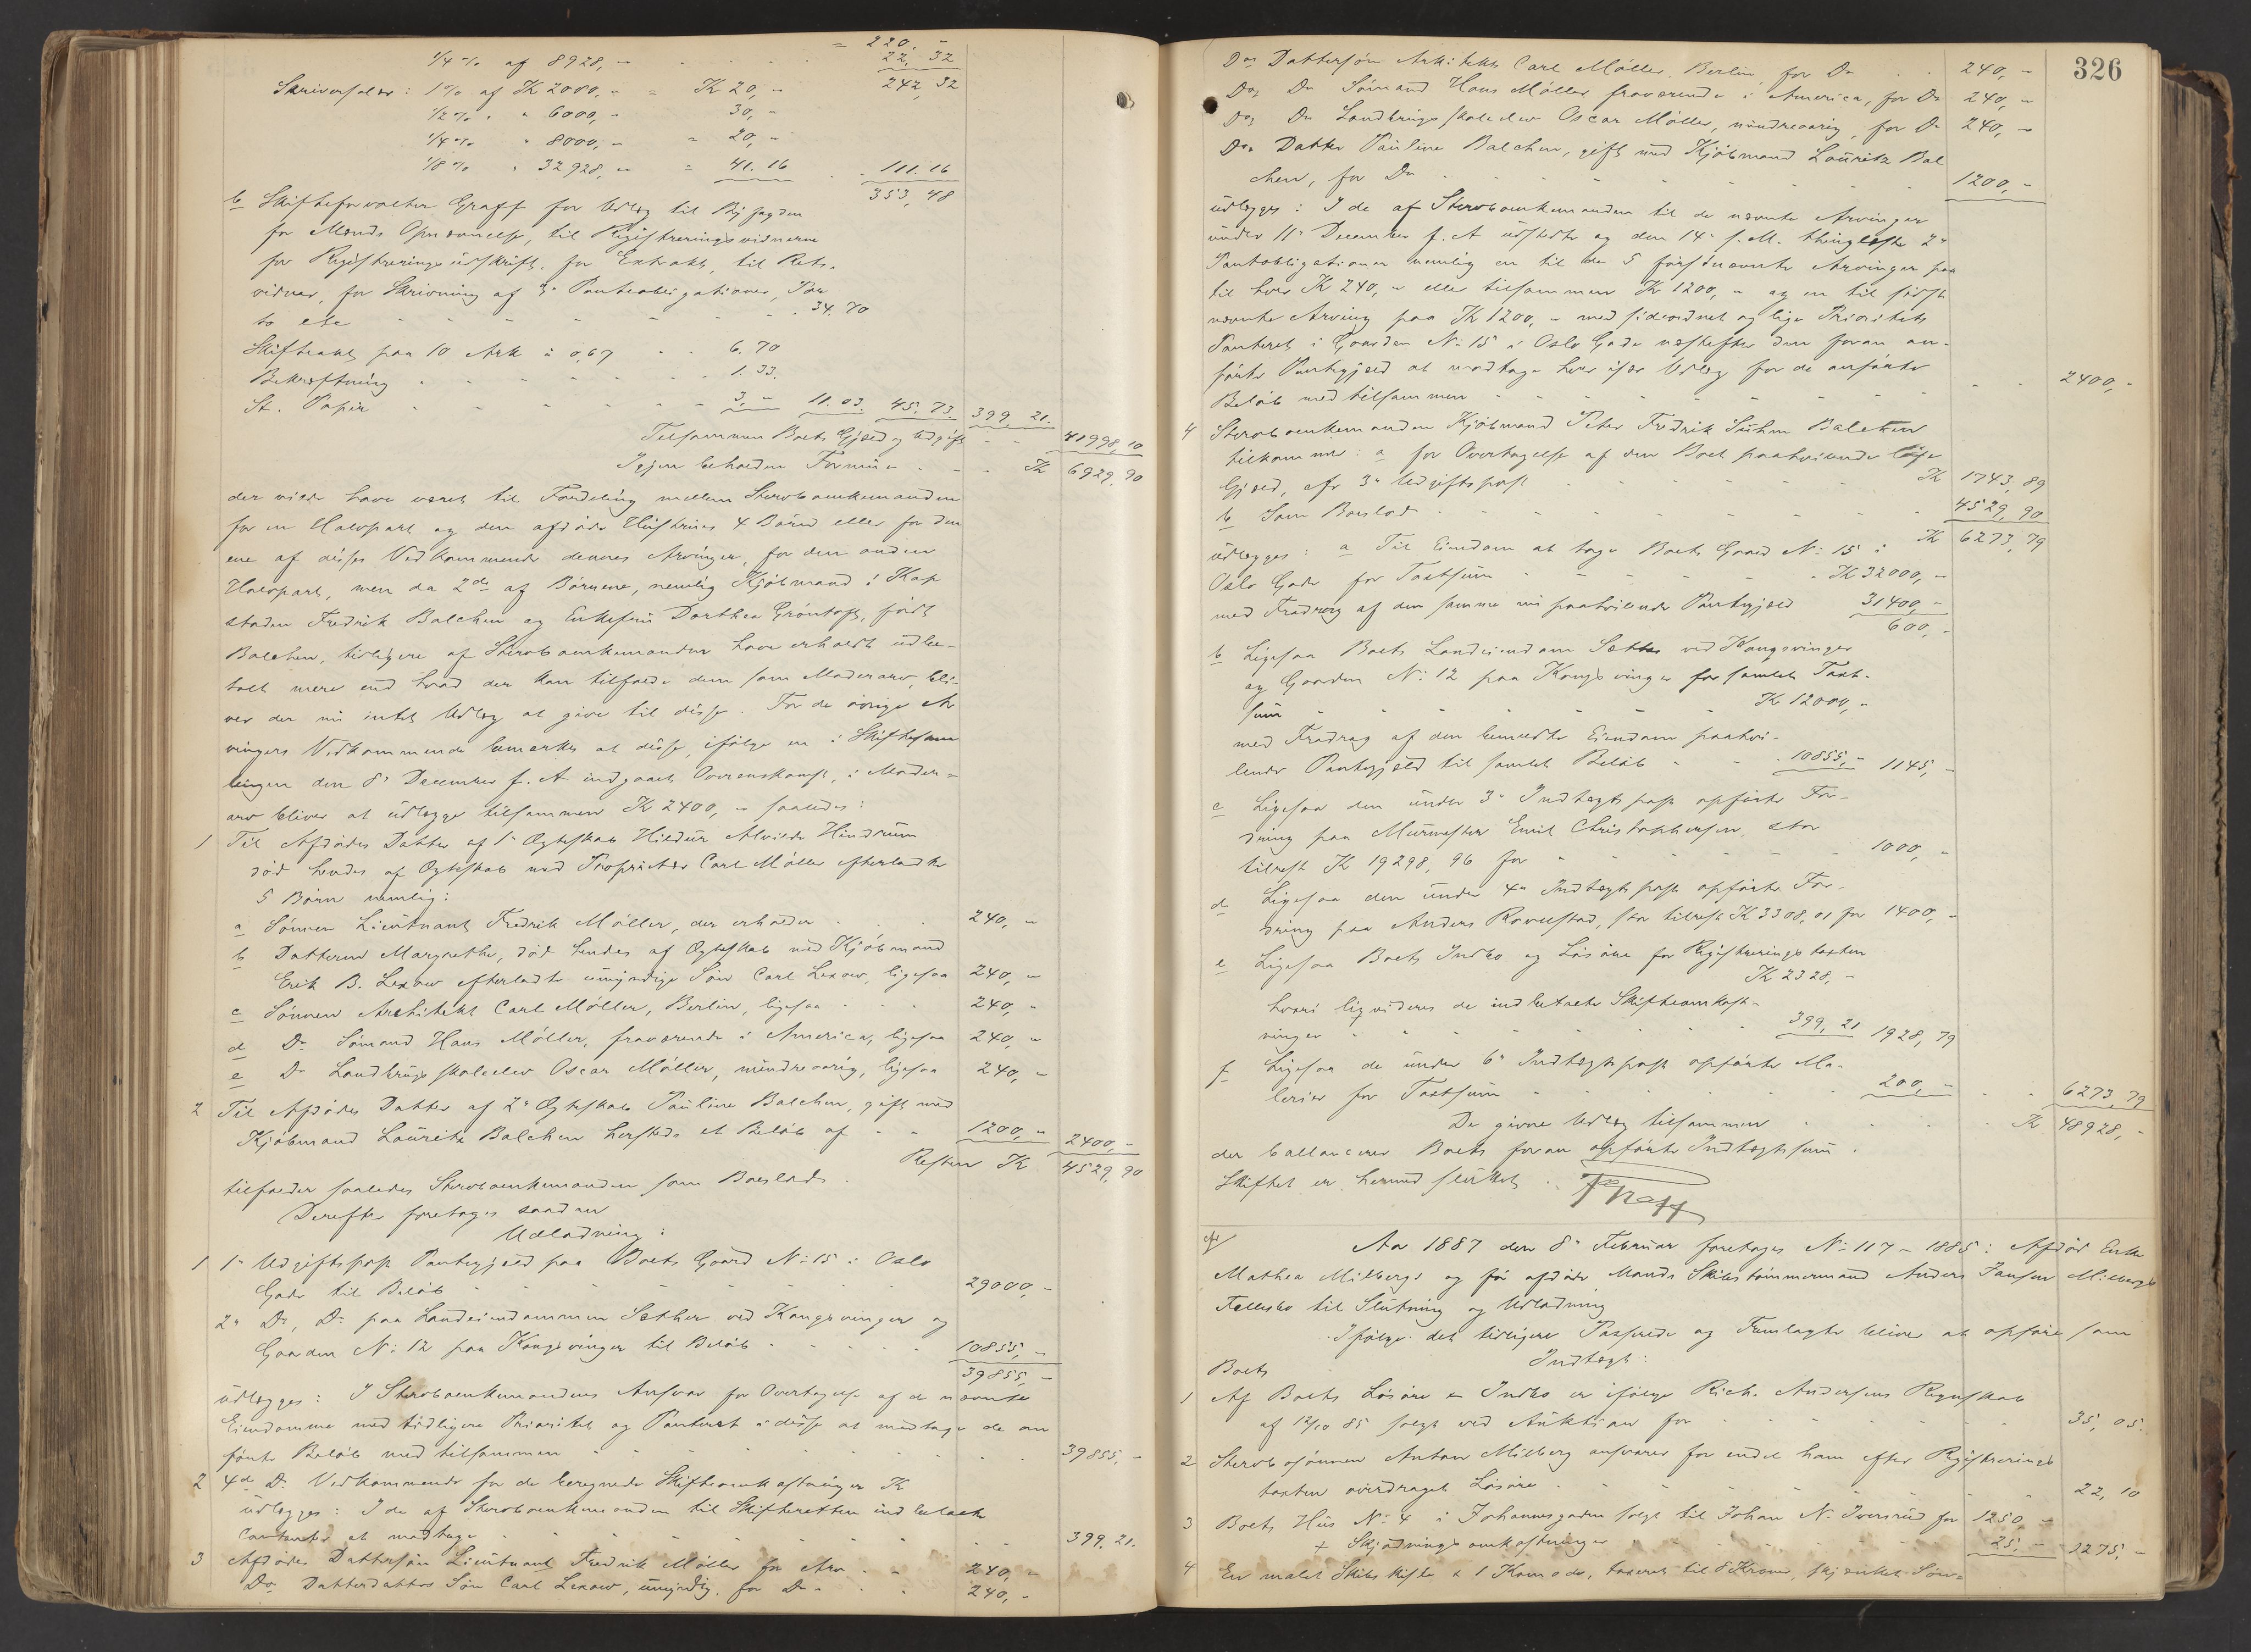 = 220. -
1/4 % af 8928, - 22, 32
Skriversalær: 1 % af K 2080, - = K 20, - 242, 32
1/2 % " " 6000, - 30, -
1/4 % " 8000, - = 20, -
1/8 % " 32928, - = 41. 16 111. 16
b Skifteforvalter Graff for Udlæg til Byfogden 353, 48
for Mænds Opnævnelse, til Registreringsvidnerne
for Registreringsudskrift, for Extrakt, til Rets-
vidner, for Skrivning af Panteobligationer, Por
to etc 34. 70
Skifteakt paa 10 Ark à 0,67 6. 70
Bekræftning 1. 33.
St. Papir 3, - 11. 03. 45. 73. 399, 21.
Tilsammen Boets Gjæld og Udgift 41998, 10
Igjen beholden Formue K 6929, 90
der vilde have været til Fordeling mellem Stervboenkemanden
for en Halvpart og den afdøde Hustrues 4 Børn eller for den
ene af disses Vedkommende dennes Arvinger, for den anden
Halvpart, men da 2de af Børnene, nemlig Kjøbmand i Kap
staden Fredrik Balchen og Enkefru Dorthea Grøntoft, født
Balchen, tidligere af Stervboenkemanden have erholdt udbe-
talt mere end hvad der kan tilfalde dem som Mødrenarv, bli-
ver der nu intet Udlæg at give til disse. For de øvrige Ar
vingers Vedkommende bemærkes at disse, ifølge en i Skiftesam
lingen den 8' December f. A indgaaet Overenskomst, i Mødren-
arv bliver at udlægge tilsammen K 2400, - saaledes:
1 Til Afdødes Datter af 1' Ægteskab Hildur Alvilde Hindrum
død hendes af Ægteskab med Proprietær Carl Møller efterladte
5 Børn nemlig:
a Sønnen Lieutnant Fredrik Møller, der erholder 240, -
b Datteren Margrethe, død hendes af Ægteskab med Kjøbmand
Erik B. Lexow efterladte umyndige Søn Carl Lexow, ligesaa 240, -
c Sønnen Architekt Carl Møller, Berlin, ligesaa 240, -
d Do Sømand Hans Møller, fraværende i America, ligesaa 240, -
e Do Landbrugsskoleelev Oscar Møller, mindreaarig, ligesaa 240, -
2 Til Afdødes Datter af 2' Ægteskab Pauline Balchen, gift med
Kjøbmand Lauritz Balchen hersteds et Beløb af 1200, - 2400, -
Resten K 4529, 90
tilfalder saaledes Stervboenkemanden som Boeslod.
Derefter foretages saadan
Udlodning:
1 1' Udgiftspost Pantegjæld paa Boets Gaard No 15 i Oslo
Gade til Beløb 29000, -
2' Do, Do paa Landeiendommen Sæther ved Kongsvinger og
Gaarden No 12 paa Kongsvinger til Beløb 10855, -
39855, -
udlægges: I Stervboenkemandens Ansvar for Overtagelse af de nævnte
Eiendomme med tidligere Prioritet og Panteret i disse at modtage de an
førte Beløb med tilsammen 39855, -
2 4de Do Vedkommende for de beregnede Skifteomkostninger K
udlægges: I de af Stervboenkemanden til Skifteretten indbetalte
Contanter at modtage 399. 21.
3 Afdødes Dattersøn Lieutnant Fredrik Møller for Arv 240, -
Dos Datterdatters Søn Carl Lexow, umyndig, for Do 240, -
326
Dos Dattersøn Arkitekt Carl Møller, Berlin, for Do 240, -
Dos Do Sømand Hans Møller fraværende i America, for Do 240, -
Dos Do Landbrugsskoleelev Oscar Møller, mindreaarig, for Do 240, -
Dos Datter Pauline Balchen, gift med Kjøbmand Lauritz Bal
chen, for Do 1200, -
udlægges: I de af Stervboenkemanden til de nævnte Arvinger
under 11' December f. A udstedte og den 14' s. M. thinglæste 2'
Pantobligationer nemlig en til de 5 førstnævnte Arvinger paa
til hver K 240, - eller tilsammen K 1200, - og en til sidst
nævnte Arving paa K 1200, - med sideordnet og lige Prioritets
Panteret i Gaarden No 15 i Oslo Gade næstefter den foran an-
førte Pantegjæld at modtage hver især Udlæg for de anførte
Beløb med tilsammen 2400, -
4 Stervboenkemanden Kjøbmand Peter Fredrik Suhm Balchen
tilkommer: a for Overtagelse af den Boet paahvilende løse
Gjæld, cfr 3' Udgiftspost K 1743, 89
b Som Boeslod 4529, 90
K 6273, 79
udlægges: a Til Eiendom at tage Boets Gaard No 15 i
Oslo Gade for Taxtsum K 32000, -
med Fradrag af den samme nu paahvilende Pantegjæld 31400, -
600, -
b Ligesaa Boets Landeiendom Sæther ved Kongsvinger
og Gaarden No 12 paa Kongsvinger for samlet Taxt-
sum K 12000, -
med Fradrag af den bemeldte Eiendom paahvi-
lende Pantegjæld til samlet Beløb 10855, - 1145, -
c Ligesaa den under 3' Indtægtspost opførte For-
dring paa Murmester Emil Christophersen, stor
tilrest K 19298, 96 for 1000, -
d Ligesaa den under 4' Indtægtspost opførte For-
dring paa Anders Ravelstad, stor tilrest K 3308, 01 for 1400, -
e Ligesaa Boets Indbo og Løsøre for Registreringstaxten
K 2328, -
hvori ligvideres de indbetalte Skifteomkost-
ninger 399, 21 1928, 79
f Ligesaa de under 6' Indtægtspost opførte Ma-
lerier for Taxtsum 200, - 6273, 79
De givne Udlæg tilsammen K 48928, -
der ballancerer Boets foran opførte Indtægtssum.
Skiftet er hermed sluttet.
Graff
Aar 1887 den 8' Februar foretages No 117 - 1885: Afdød Enke
Mathea Milbergs og før afdøde Mands Skibstømmermand Anders Jansen Milbergs
Fællesbo til Slutning og Udlodning
Ifølge det tidligere Passerede og Fremlagte bliver at opføre som
Boets Indtægt:
1 Af Boets Løsøre & Indbo er ifølge Rich. Andersens Regnskab
af 12/10 85 solgt ved Auktion for 35, 05.
2 Stervbosønnen Anton Milberg ansvarer for endel ham efter Registrerings
taxten overdraget Løsøre 22, 10
3 Boets Hus No 4 i Johannesgaden solgt til Johan N. Iversrud for 1250, -
+ Skjødningsomkostninger 25, - 2275, -
4 En malet Skibskiste & 1 Komode, taxeret til 8 Kroner, skjænket Søn=